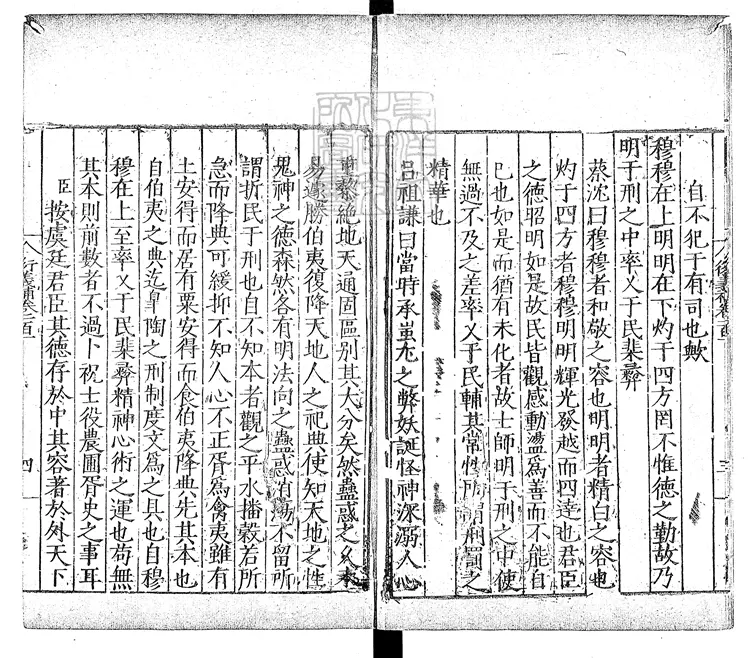 自不犯于有司也歟
穆穆在上明明在下灼于四方罔不惟德之勤故乃
明于刑之中率乂于民棐彝
蔡沈曰穆穆者和敬之容也明明者精白之容也
灼于四方者穆穆明明輝光發越而四達也君臣
之德昭明如是故民皆觀感動盪爲善而不能自
已也如是而猶有未化者故士師明于刑之中使
無過不及之差率乂于民輔其常性所謂刑罰之
精華也
呂祖謙曰當時承蚩尤之弊妖誕怪神深溺人心
黎絶地天通固區別其大分矣然蠱惑之久未
易遽勝伯夷復降天地人之祀典使知天地之性
鬼神之德森然各有明法向之蠱惑消蕩不留所
謂折民于刑也自不知本者觀之平水播穀若所
急而降典可緩抑不知人心不正胥爲禽夷雖有
土安得而居有粟安得而食伯夷降典先其本也
自伯夷之典迄皐陶之刑制度文爲之具也自穆
穆在上至率乂于民棐彝精神心術之運也苟無
其本則前數者不過卜祝士役農圃胥史之事耳
臣按虞廷君臣其德存於中其容著於外天下
衍義補卷之一百一
四